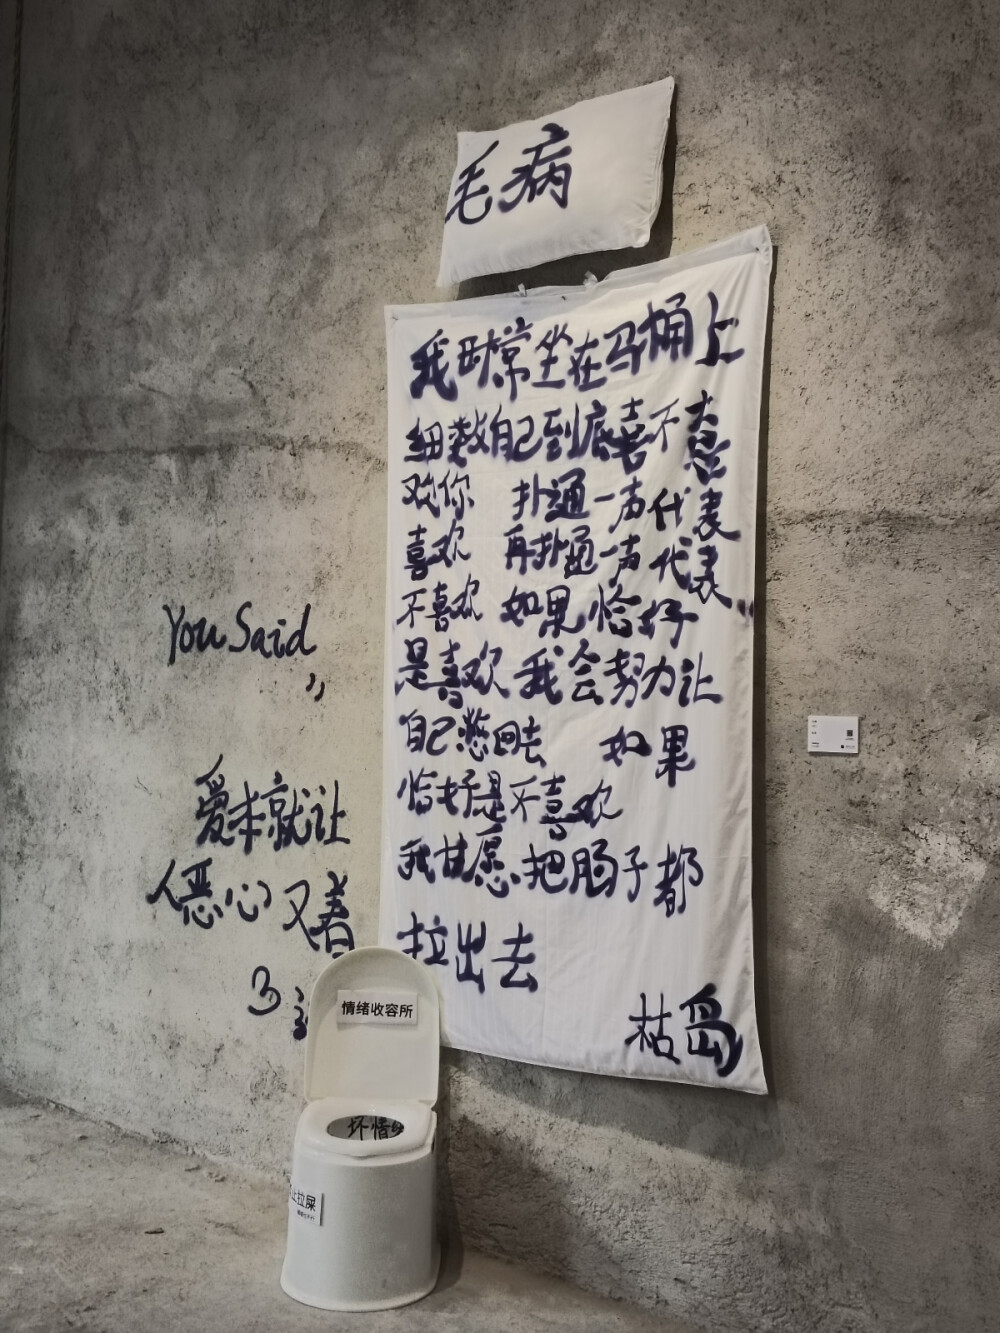 毛病
我时常坐在马桶上
细数自己到底喜不喜
欢你 扑通一声代表
喜欢 再扑通一声代表
不喜欢 如果恰好
是喜欢 我会努力让
自己憋回去 如果
恰好是不喜欢
我甘愿把肠子都
拉出去
枯岛
You Said
爱本就让
人恶心又着
了
情绪收容所
坏情绪
止拉屎